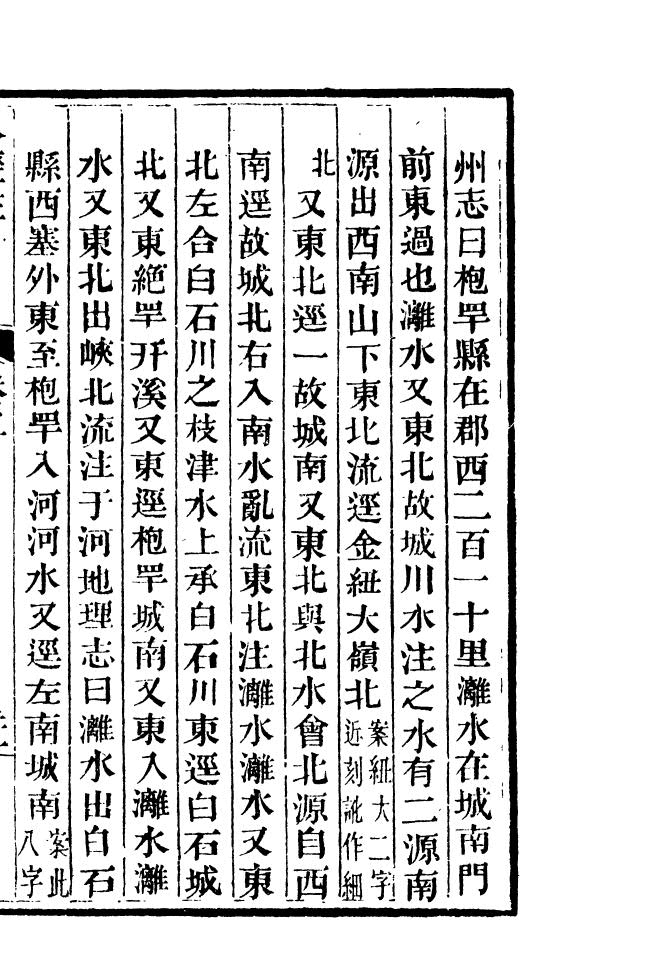 州志曰枹䍐縣在郡西二百一十里灕水在城南門
前東過也灕水又東北故城川水注之水有二源南
源出西南山下東北流逕金紐大嶺北案紐大二字近刻訛作細
北又東北逕一故城南又東北與北水會北源自西
南逕故城北右入南水亂流東北注灕水灕水又東
北左合白石川之枝津水上承白石川東逕白石城
北又東絕䍐幵溪又東逕枹䍐城南又東入灕水灕
水又東北出峽北流注于河地理志曰灕水出白石
縣西塞外東至枹䍐入河河水又逕左南城南案此八字